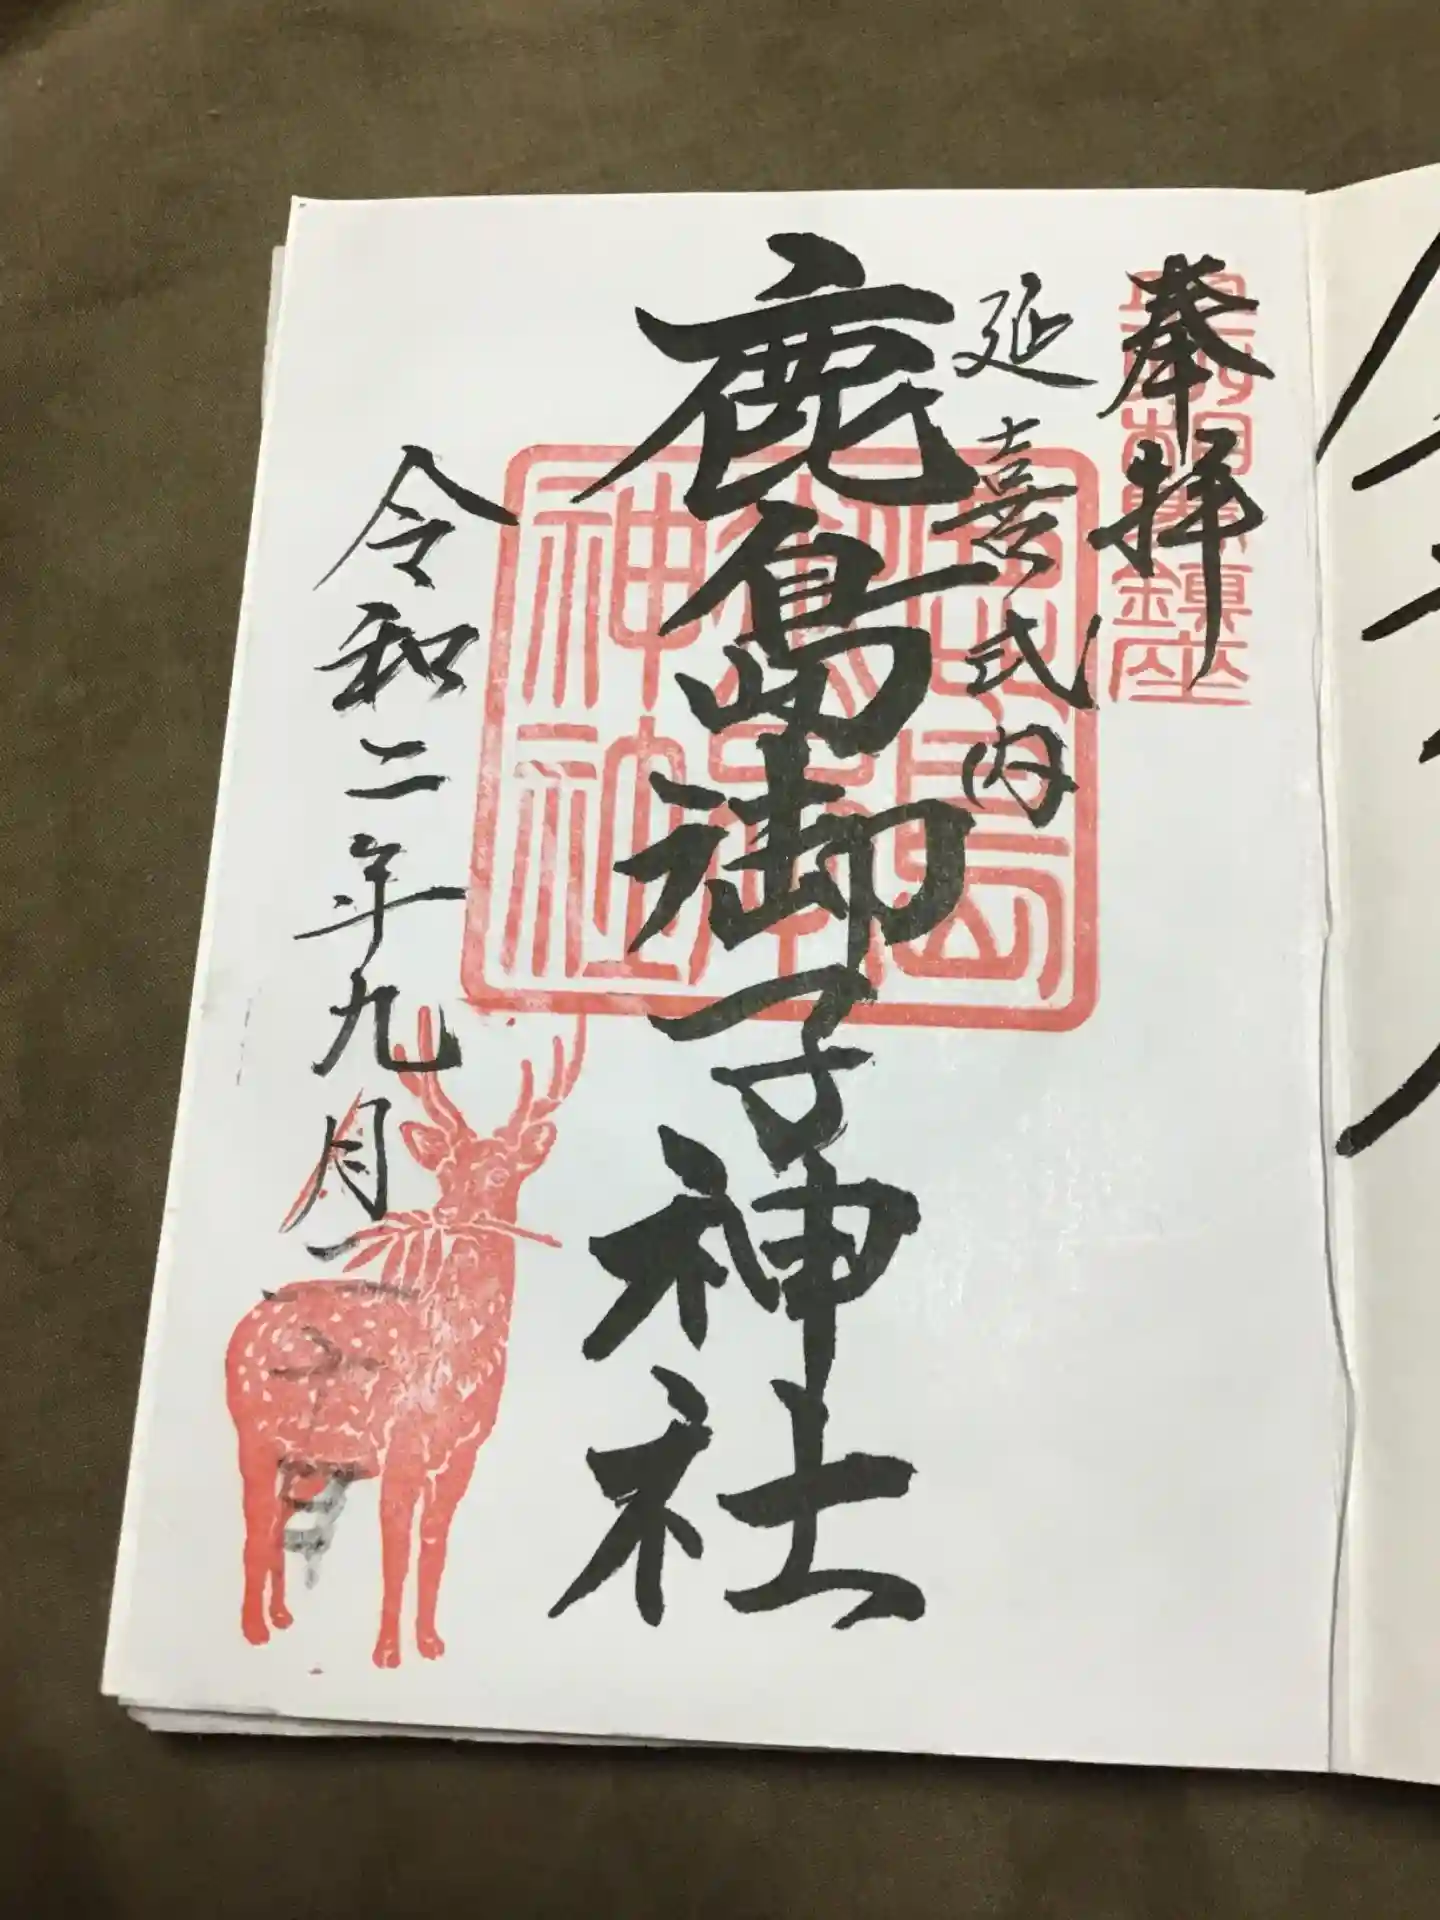 奉拝
延喜式内
鹿島御子神社
令和二年九月二十日
鹿島
御子
神社
鎮座